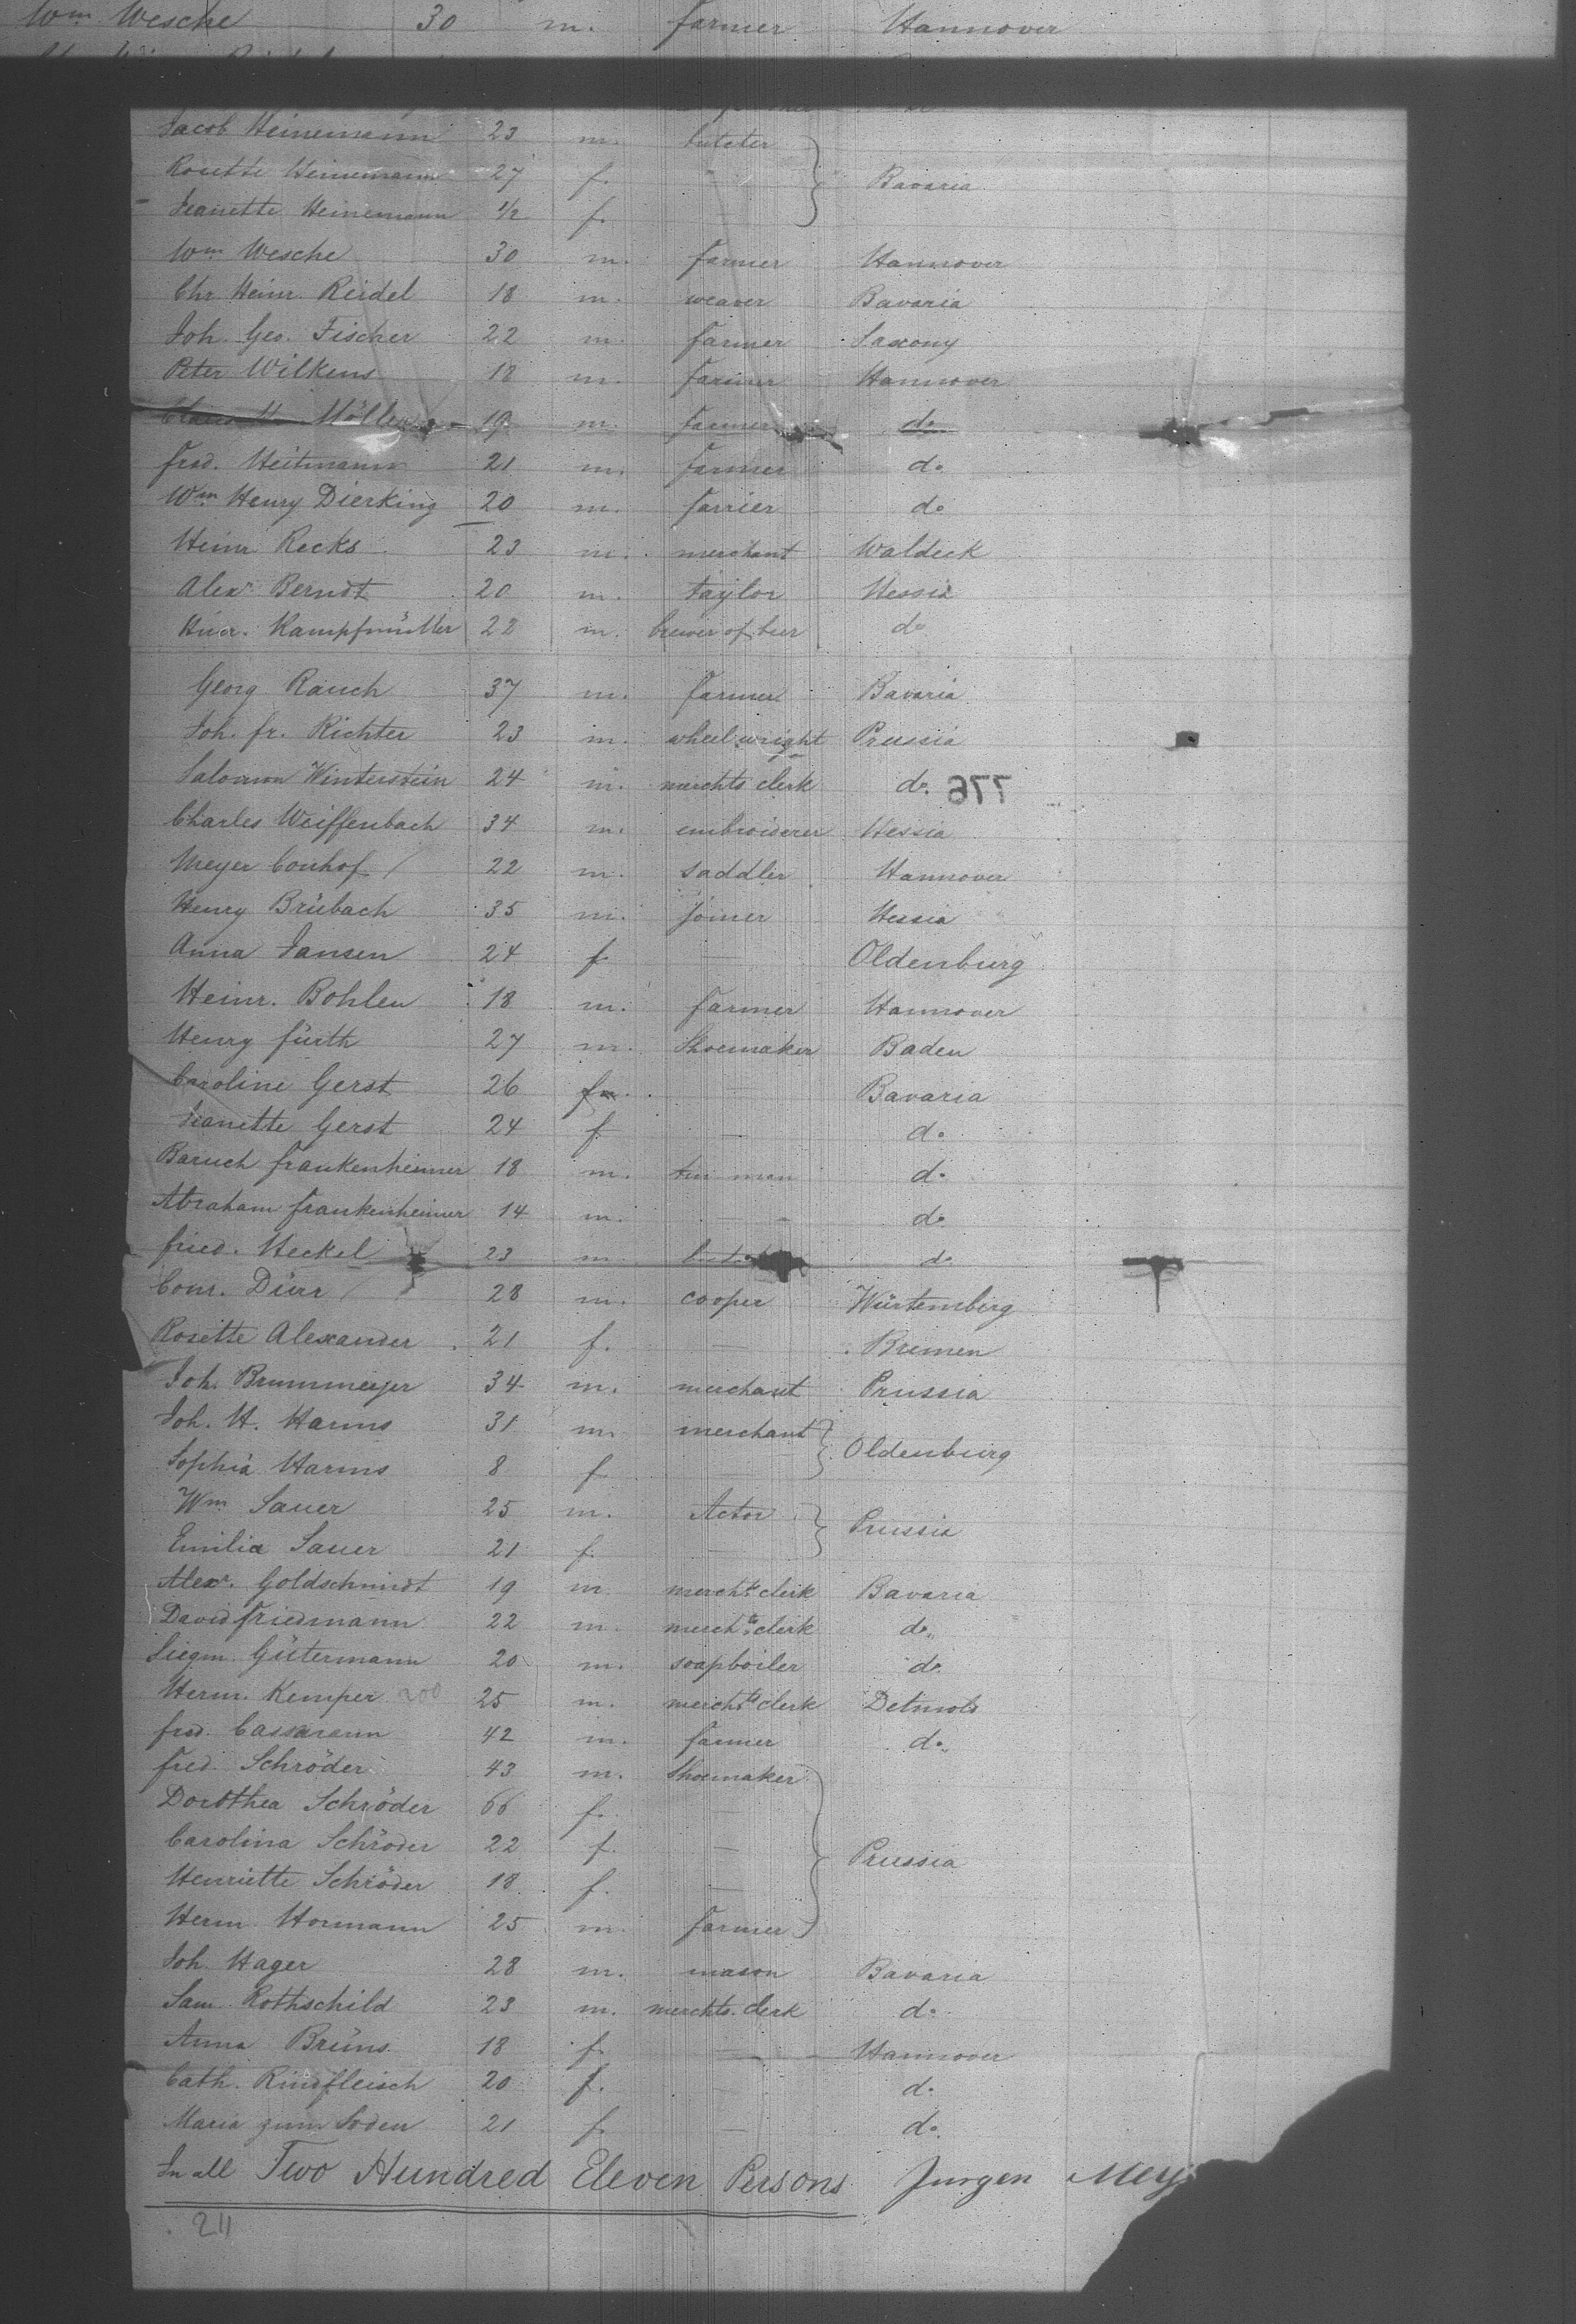 Wm Wesche 30 m. farmer Hannover
Jacob Heinemann 23 m. butcter
Rosette Heinemann 27 f. Bavaria
Jeanette Heinemann 1/2 f.
Wm Wesche 30 m. farmer Hannover
Chr. Heinr. Reidel 18 m. weaver Bavaria
Joh. Geo. Fischer 22 m. farmer Saxony
Peter Wilkens 18 m. farmer Hannover
Möller 19 m. farmer do
Fred. Heitmann 21 m. farmer do
Wm Henry Dierking 20 m. farrier do
Heinr Recks 23 m. merchant Waldeck
Alexr Berndt 20 m. taylor Hessia
Kampfmüller 22 m. brewer of beer do
Georg Rauch 37 m. farmer Bavaria
Joh. fr. Richter 23 m. wheelwright Prussia
Salomon Winterstein 24 m. merchts clerk do. 776
Charles Weiffenbach 34 m. embroiderer Hessia
Meyer Conhof 22 m. saddler Hannover
Henry Brübach 35 m. joiner Hessia
Anna Jansen 24 f — Oldenburg
Heinr. Bohlen 18 m. farmer Hannover
Henry fürth 27 m. Shoemaker Baden
Caroline Gerst 26 f — Bavaria
Jeanette Gerst 24 f — do
Baruch Frankenheimer 18 m. tin man do
Abraham Frankenheimer 14 m. — do
Fried. Heckel 23 m. do
Conr. Dürr 28 m. cooper Würtemberg
Rosette Alexander 21 f. — Bremen
Joh. Brummeyer 34 m. merchant Prussia
Joh. H. Harms 31 m. merchant Oldenburg
Sophia Harms 8 f
Wm Sauer 25 m. Actor Prussia
Emilia Sauer 21 f. —
Alexr. Goldschmidt 19 m merchts clerk Bavaria
David Friedmann 22 m. merchts clerk do
Siegm. Gütermann 20 m. soapboiler do
Herm. Kemper 200 25 m. merchts clerk Detmold
fred. Cassarann 42 m. farmer do
fred. Schröder 43 m. Shoemaker
Dorothea Schröder 66 f. —
Carolina Schröder 22 f. — Prussia
Henriette Schröder 18 f. —
Herm. Hormann 25 m. farmer
Joh. Hager 28 m. mason Bavaria
Sam. Rothschild 23 m. merchts. clerk do
Anna Brüns 18 f. — Hannover
Cath. Rindfleisch 20 f. do
Maria zum Soden 21 f — do
In all Two Hundred Eleven Persons Jurgen Mey
211